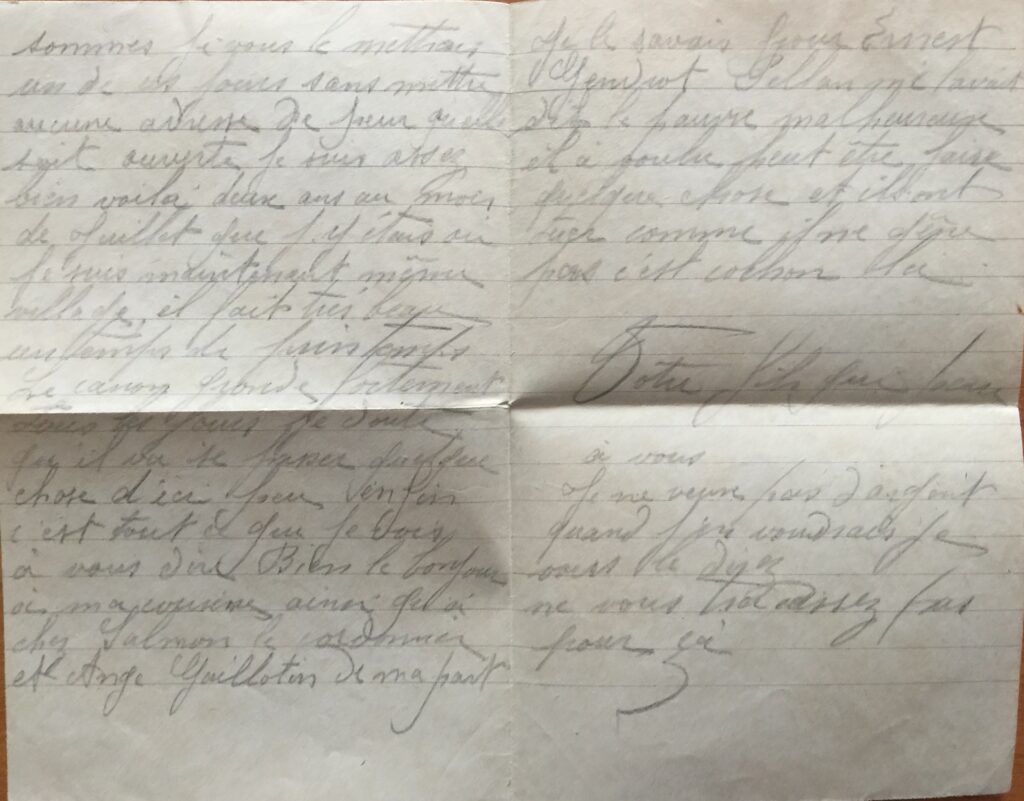 sommes je vous le mettrais
un de ces jours sans mettre
aucune adresse de peur quelle
soit ouverte je suis assez
bien voila deux ans au mois
de Juillet que j'y étais ou
je suis maintenant même
village il fait très beau
un temps de printemps
Le canon gronde fortement
tous les jours je doute
qu'il va se passer quelque
chose d'ici peu enfin
c'est tout ce que je vois
à vous dire Bien le bonjour
à ma cousine ainsi qu'à
chez Salmon le cordonnier
et Ange Guillotin de ma part
Je le savais pour Ernest
Gendrot me l'avait
dit le pauvre malheureux
il a voulu peut être faire
quelque chose et ils ont
tuer comme il ne gêne
pas c'est cochon la
Votre fils qui pense
à vous
Je ne veux pas d'argent
quand j'en voudrais je
vous le direz
ne vous tracassez pas
pour ça